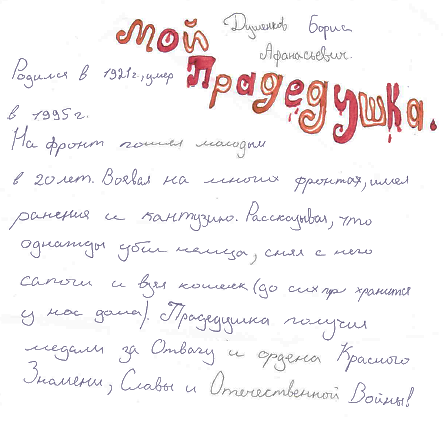 Мой Душенков Борис
Афанасьевич.
Прадедушка.
Родился в 1921г, умер
в 1995г.
На фронт пошел молодым
в 20 лет. Воевал на многих фронтах, имел
ранения и кантузию. Рассказывал, что
однажды убил немца, снял с него
сапоги и взял кошелек (до сих пор хранится
у нас дома). Прадедушка получил
медали за Отвагу и ордена Красного
Знамени, Славы и Отечественной Войны!